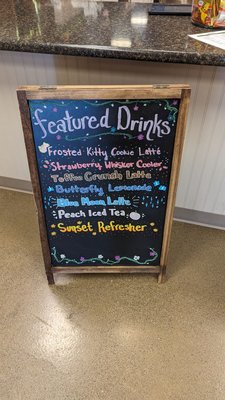 Featured Drinks
Frosted Kitty Cookie Latte
Strawberry Whisker Cooler
Toffee Crunch Latte
Butterfly Lemonade
Blue Moon Latte
Peach Iced Tea
Sunset Refresher